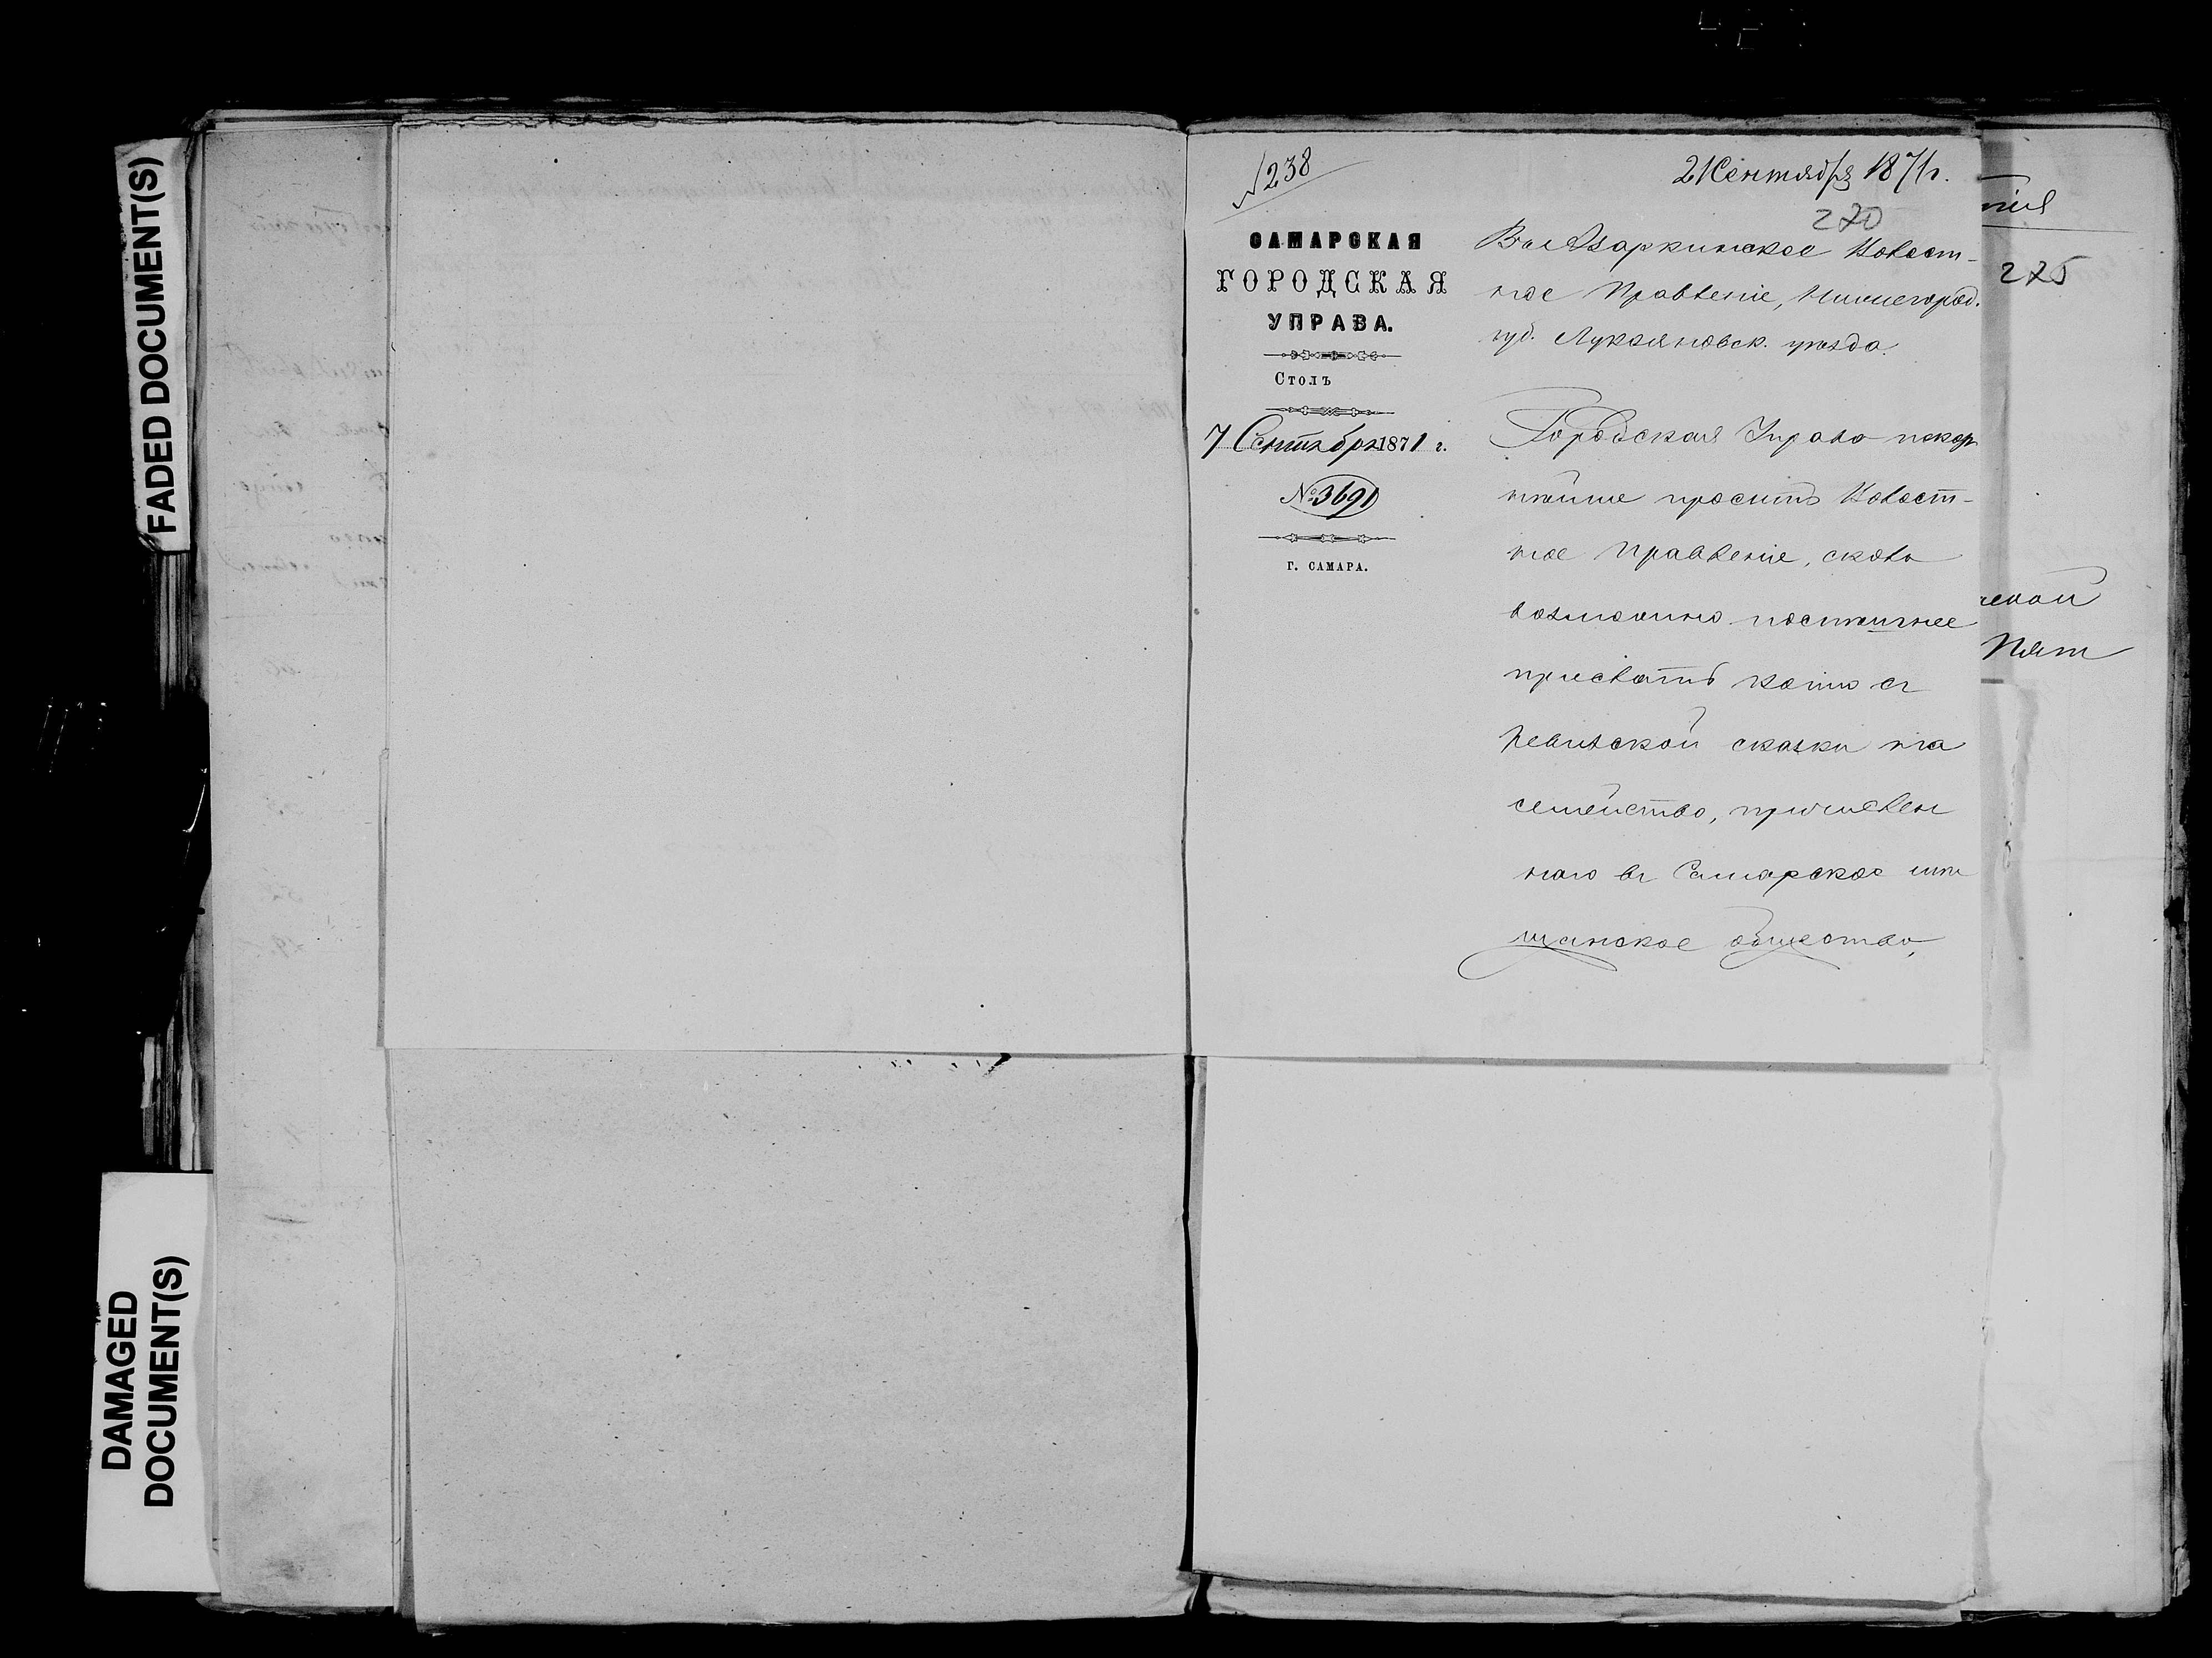 FADED DOCUMENT(S)
DAMAGED
DOCUMENT(S)
№238
21 Сентября 1871 г.
270
САМАРСКАЯ
ГОРОДСКАЯ
УПРАВА.
Столъ
7 Сентября 1871 г.
№ 3691
Г. САМАРА.
Волост-
ное Правленіе, Нижегород.
губ. Лукояновск. уѣзда.
Городская Управа покор
нѣйше проситъ Волост-
ное Правленіе, сколь
возможно поспѣшнее
прислать копію съ
Ревизской сказки на
семейство, причислен
наго въ Самарское мѣ
щанское общество,
225